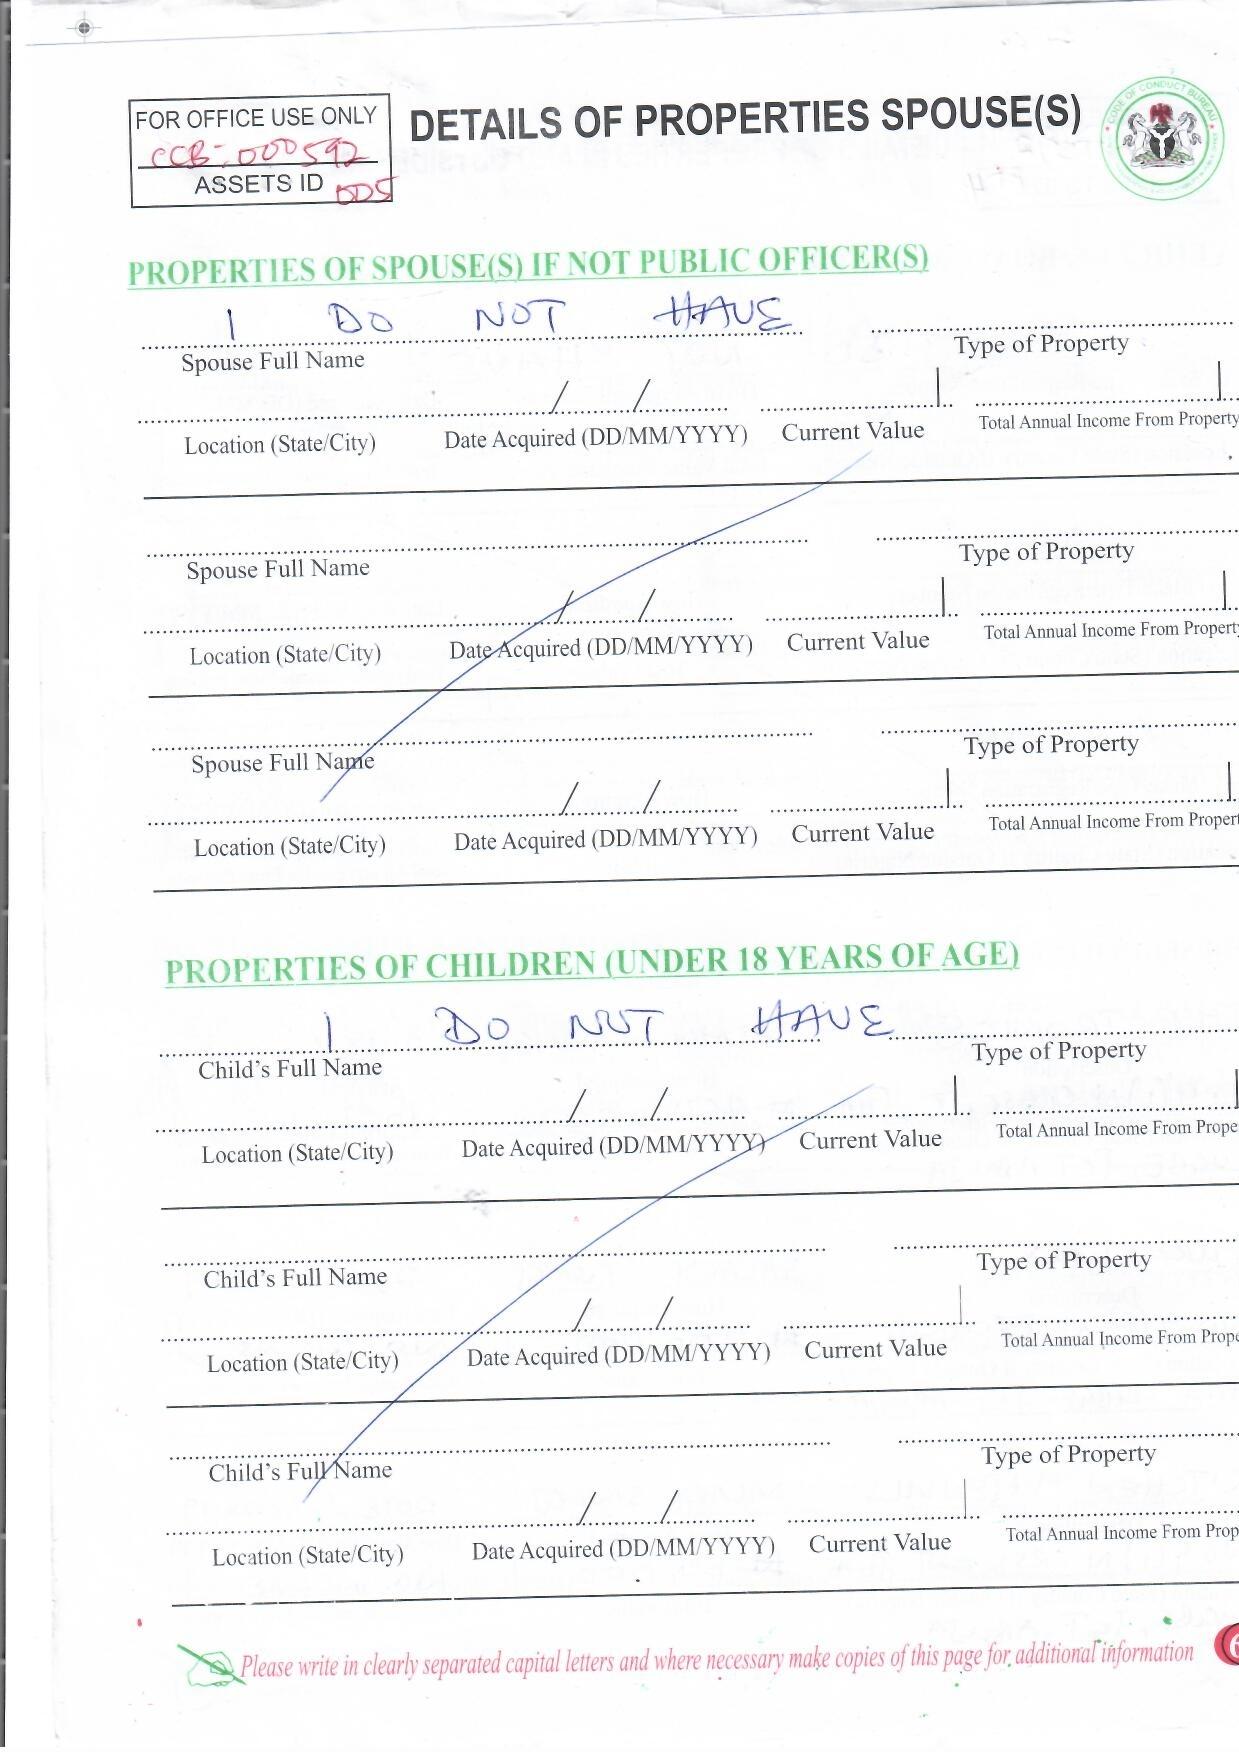 FOR OFFICE USE ONLY
CCB-000592
ASSETS ID 005
DETAILS OF PROPERTIES SPOUSE(S)
CODE OF CONDUCT BUREAU
PROPERTIES OF SPOUSE(S) IF NOT PUBLIC OFFICER(S)
I DO NOT HAVE
Spouse Full Name Type of Property
/ /
Location (State/City) Date Acquired (DD/MM/YYYY) Current Value Total Annual Income From Property
Spouse Full Name Type of Property
/ /
Location (State/City) Date Acquired (DD/MM/YYYY) Current Value Total Annual Income From Property
Spouse Full Name Type of Property
/ /
Location (State/City) Date Acquired (DD/MM/YYYY) Current Value Total Annual Income From Propert
PROPERTIES OF CHILDREN (UNDER 18 YEARS OF AGE)
I DO NOT HAVE
Child's Full Name Type of Property
/ /
Location (State/City) Date Acquired (DD/MM/YYYY) Current Value Total Annual Income From Prope
Child's Full Name Type of Property
/ /
Location (State/City) Date Acquired (DD/MM/YYYY) Current Value Total Annual Income From Prope
Child's Full Name Type of Property
/ /
Location (State/City) Date Acquired (DD/MM/YYYY) Current Value Total Annual Income From Prop
Please write in clearly separated capital letters and where necessary make copies of this page for additional information 6